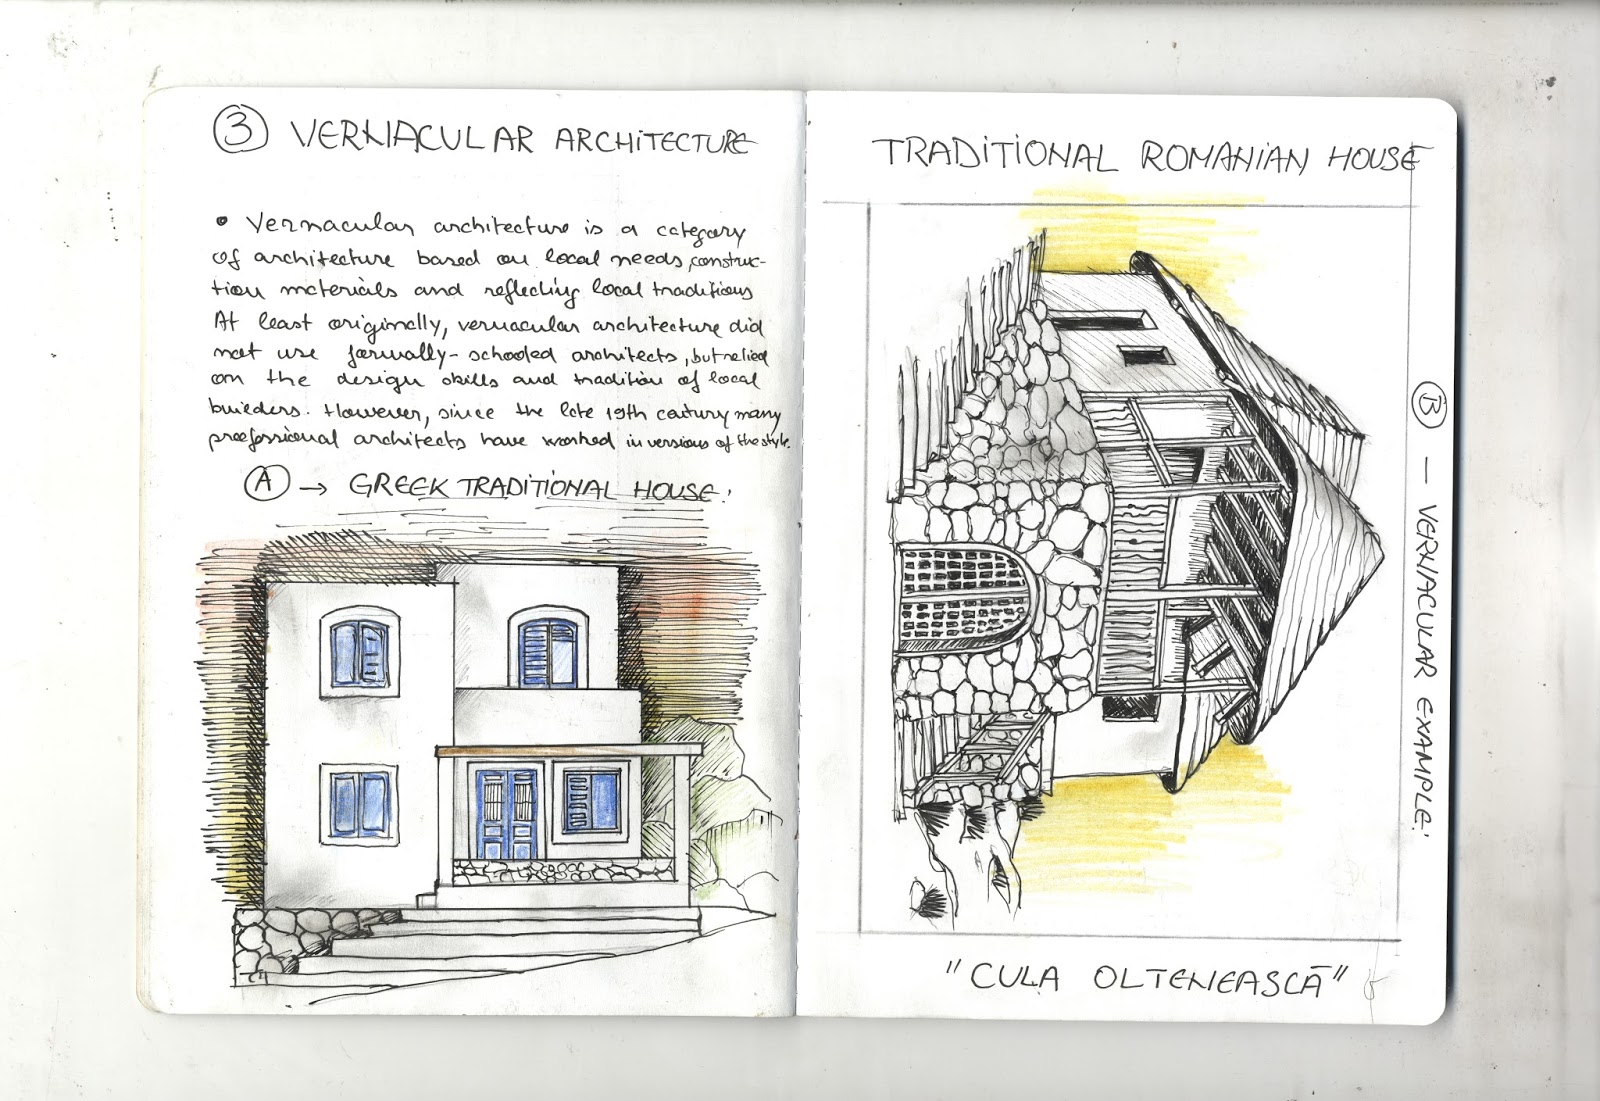 3 VERNACULAR ARCHITECTURE
• Vernacular architecture is a category
of architecture based on local needs, construc-
tion materials and reflecting local traditions
At least originally, vernacular architecture did
not use formally-schooled architects, but relied
on the design skills and tradition of local
builders. However, since the late 19th century many
professional architects have worked in versions of the style.
A → GREEK TRADITIONAL HOUSE!
TRADITIONAL ROMANIAN HOUSE
B — VERNACULAR EXAMPLE!
"CULA OLTENEASCĂ"